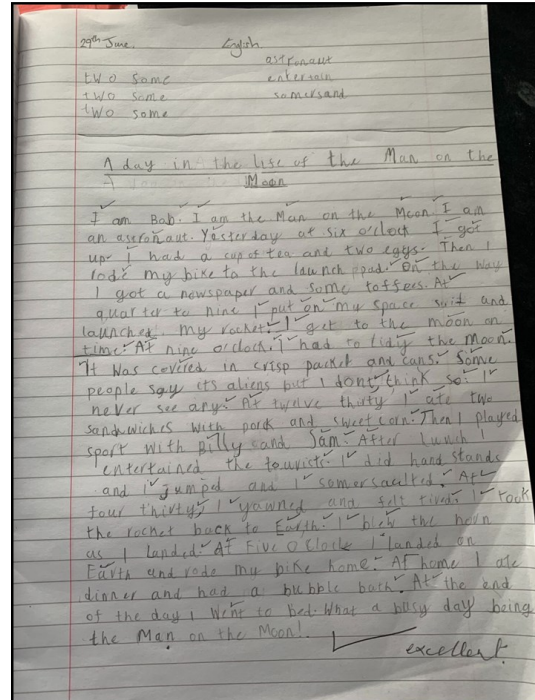 29th June. English
astronaut
two some entertain
two some somersand
two some
A day in the life of the Man on the
Moon
I am Bob. I am the Man on the Moon. I am
an astronaut. Yesterday at six o'clock I got
up. I had a cup of tea and two eggs. Then I
rode my bike to the launch pad. On the way
I got a newspaper and some toffees. At
quarter to nine I put on my space suit and
launched my rocket. I get to the moon on
time. At nine o'clock. I had to tidiy the Moon.
It was covered in crisp packet and cans. Some
people say its aliens but I dont think so. I
never see any. At twelve thirty I ate two
sandwiches with pork and sweetcorn. Then I played
sport with Billy and Sam. After lunch I
entertained the tourists. I did hand stands
and I jumped and I somersaulted. At
four thirty, I yawned and felt tired. I took
the rocket back to Earth. I blew the horn
as I landed. At Five o'clock I landed on
Earth and rode my bike home. At home I ate
dinner and had a bubble bath. At the end
of the day I went to bed. What a busy day being
the Man on the Moon!.
excellent!